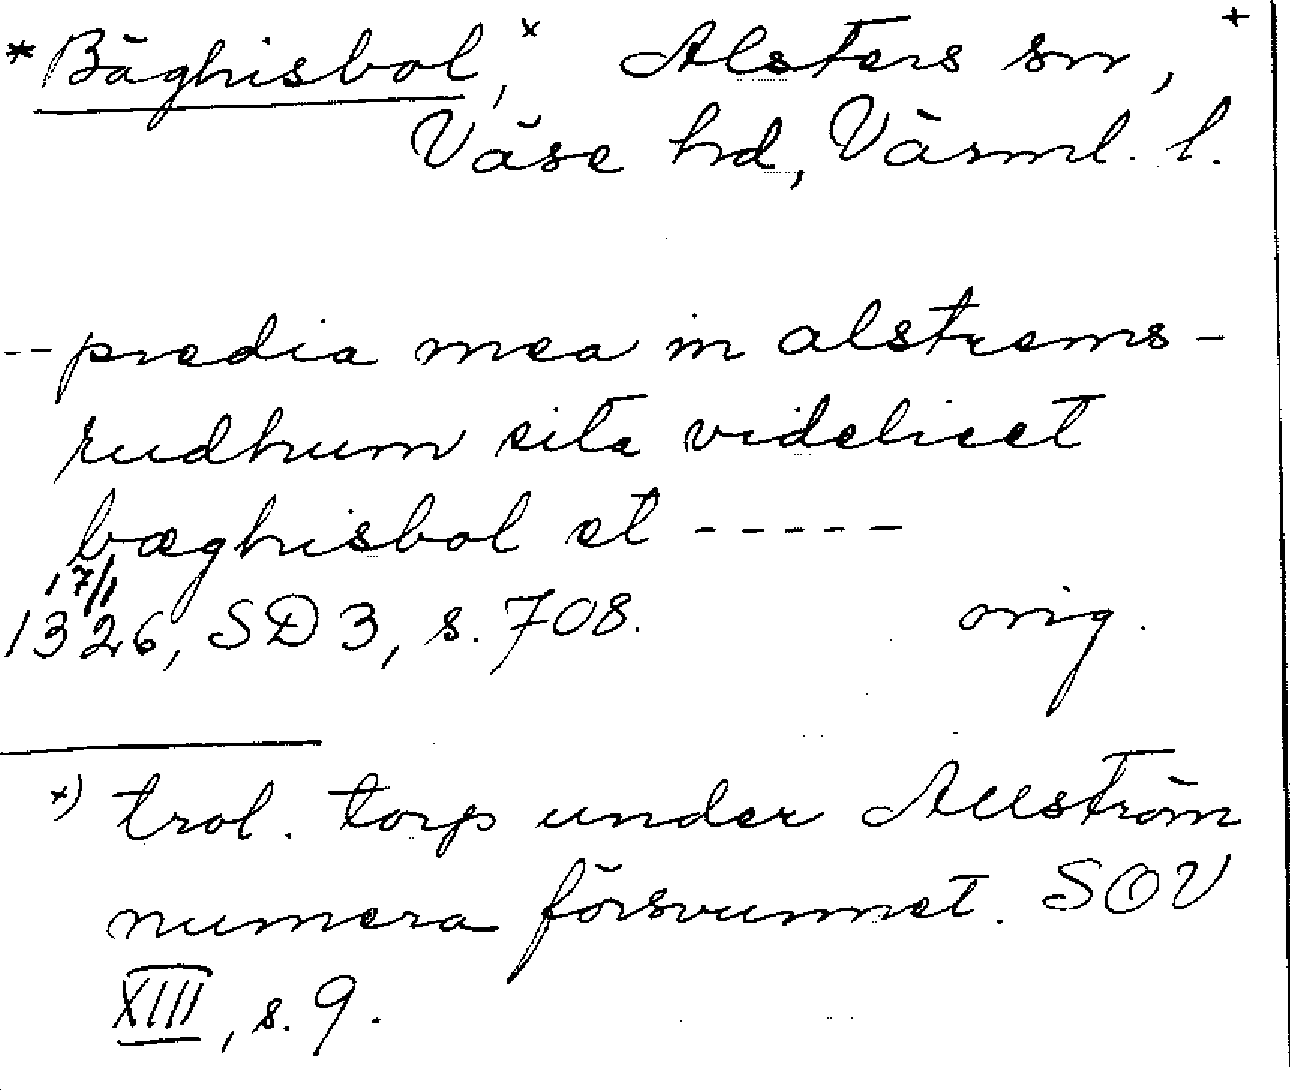 *Bäghisbol,ˣ Alsters sn, +
Väse hd, Värml. l.
-- predia mea in alstrems-
rudhum sita videlicet
bæghisbol et -----
17/1
1326, SD 3, s. 708. orig.
x) trol. torp under Allström
numera försvunnet. SOV
XIII, s. 9.